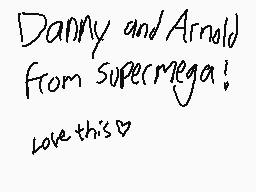 Danny and Arnold
from supermega!
Love this♡